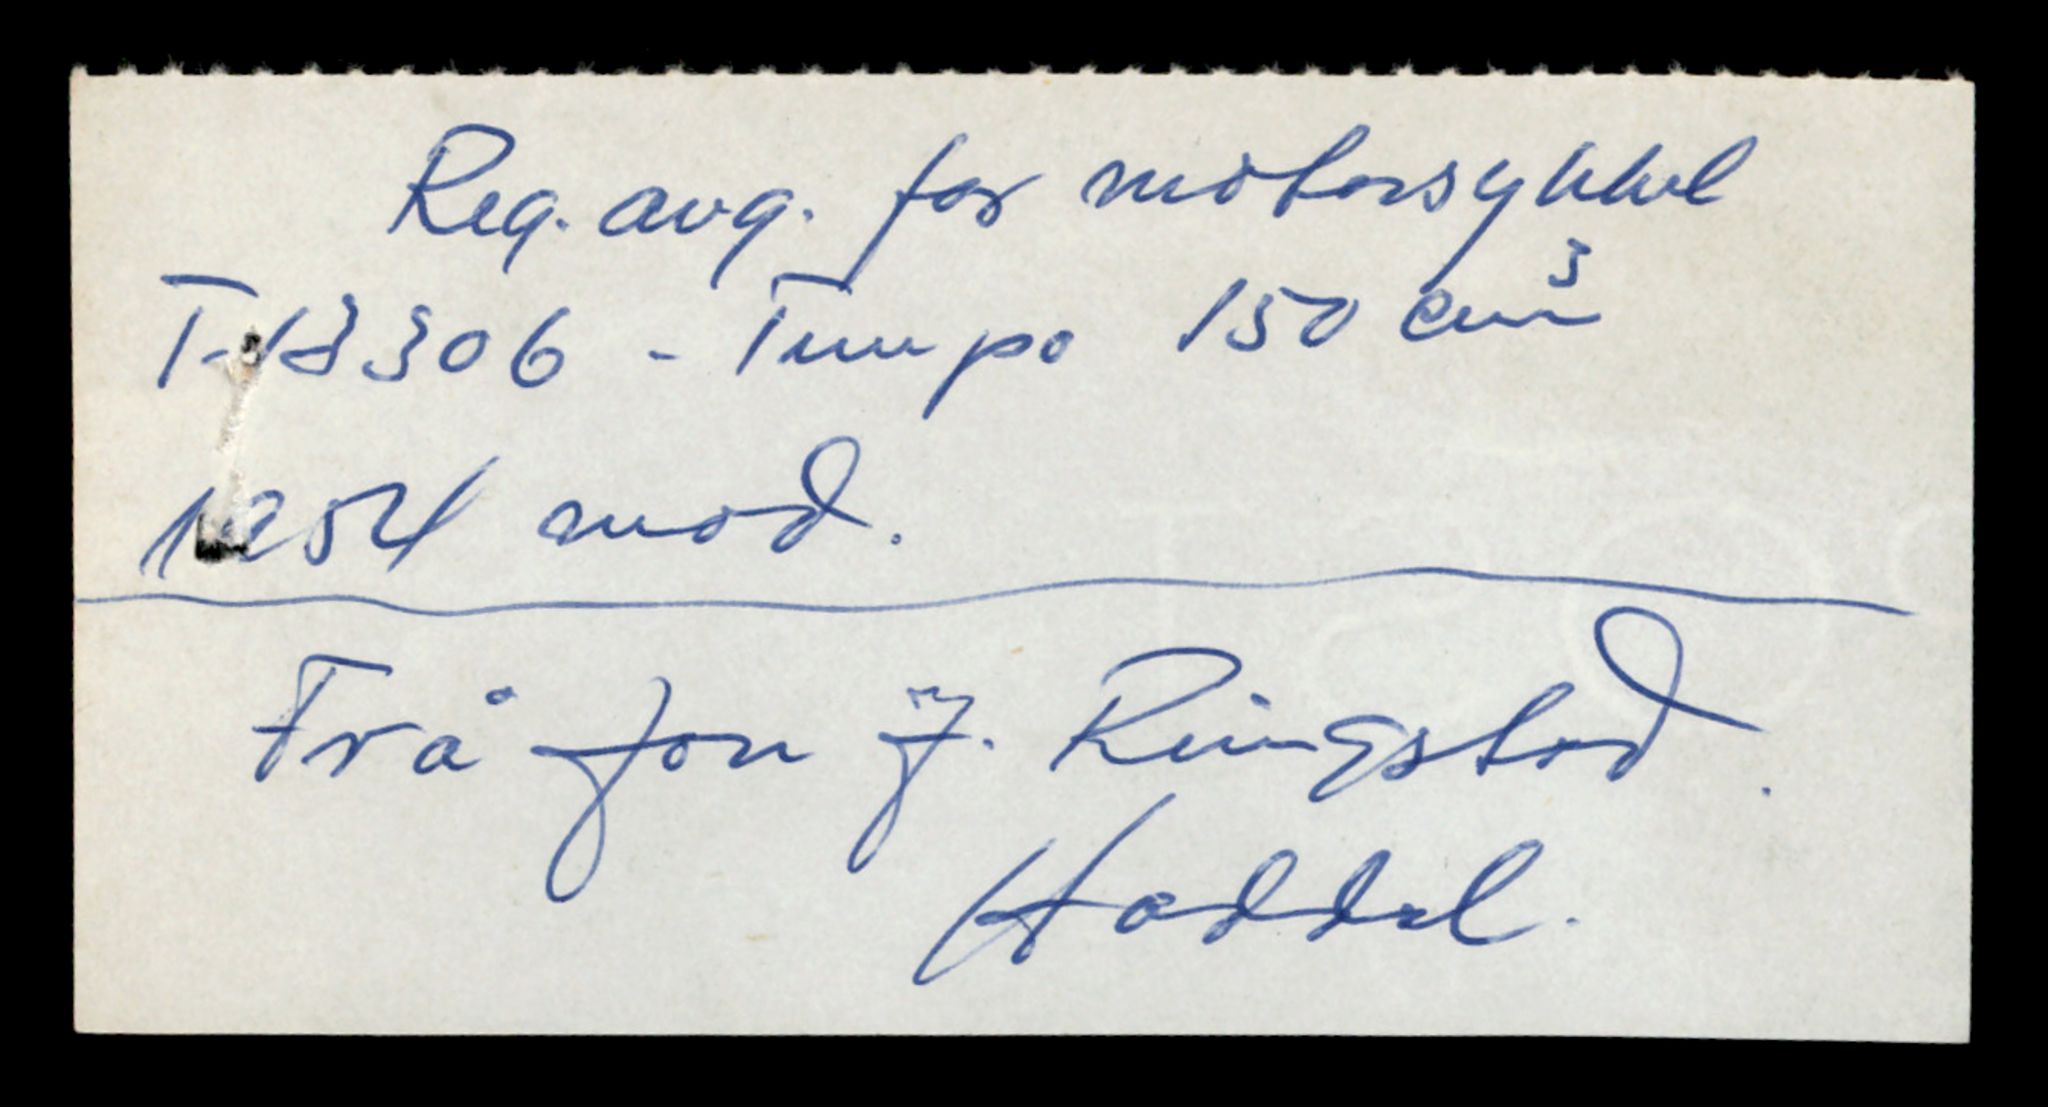 Reg. avg. for motorsykkel
T-13306 - Tempo 150 cm³
1954 mod.
Frå Jon J. Ringstad.
Haddal.